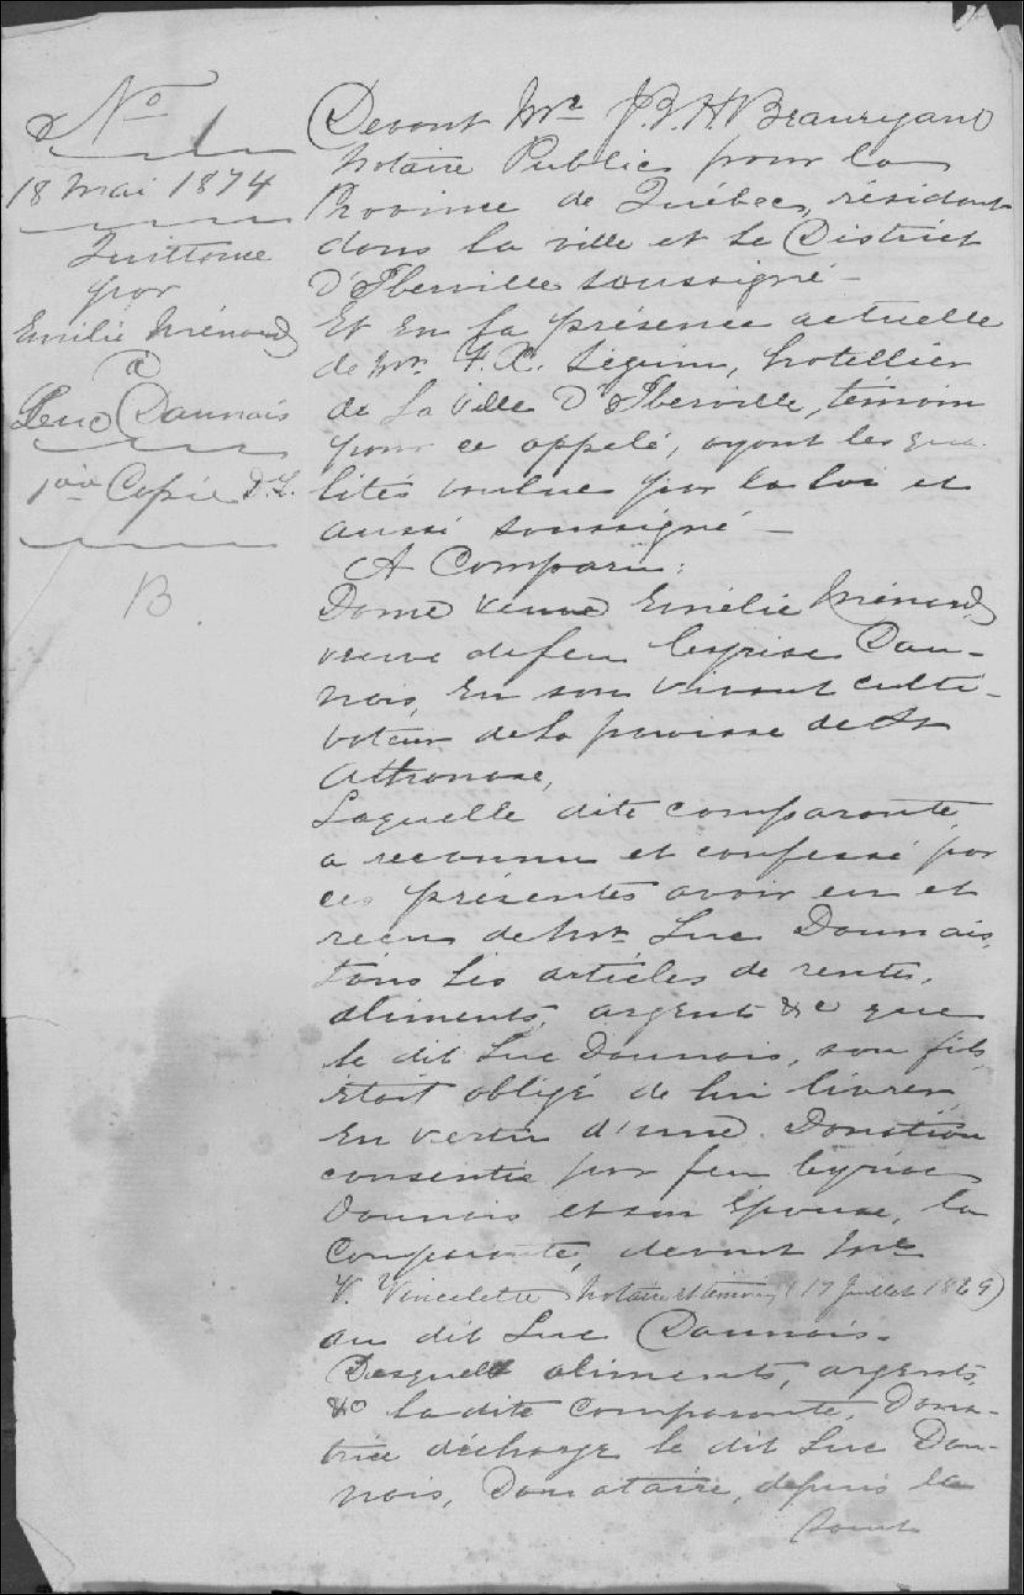 No 1
18 mai 1874
Quittance
par
Emilie Ménard
à
Luc Daunais
1ère Copie D.L.
B
Devant Mre J.B.H. Beauregard
Notaire Public pour la
Province de Québec, résidant
dans la ville et le District
D'Iberville soussigné —
Et en la présence actuelle
de Mr. F. X. Séguin, hotellier
de la Ville D'Iberville, témoin
pour ce appelé, ayant les qua-
lités voulues par la loi et
aussi soussigné —
A Comparu :
Dame veuve Emélie Ménard,
veuve de feu Cyprien Dau-
nais, en son vivant culti-
vateur de la paroisse de St
Athanase,
Laquelle dite comparante,
a reconnu et confessé par
ces présentes avoir eu et
reçu de Mr Luc Daunais,
tous les articles de rente,
aliments, argent &c que
le dit Luc Daunais, son fils,
était obligé de lui livrer,
en vertu d'une Donation
consentie par feu Cyprien
Daunais et son épouse, la
Comparante, devant Mre
V. Vincelette Notaire et témoin, (17 Juillet 1869)
au dit Luc Daunais.
Desquels aliments, argents,
&c la dite Comparante, Dona-
trice décharge le dit Luc Dau-
nais, Donataire, depuis la